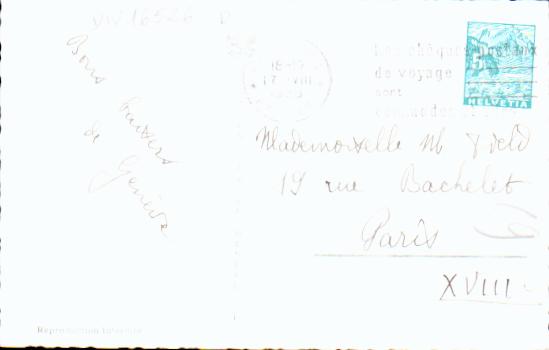 VIV 16526 D
Bons baisers
de Genève
18-19
17. VIII
Les chèques postaux
de voyage
sont
commodes
HELVETIA
Mademoiselle M
19 rue Bachelet
Paris
XVIII
Reproduction interdite